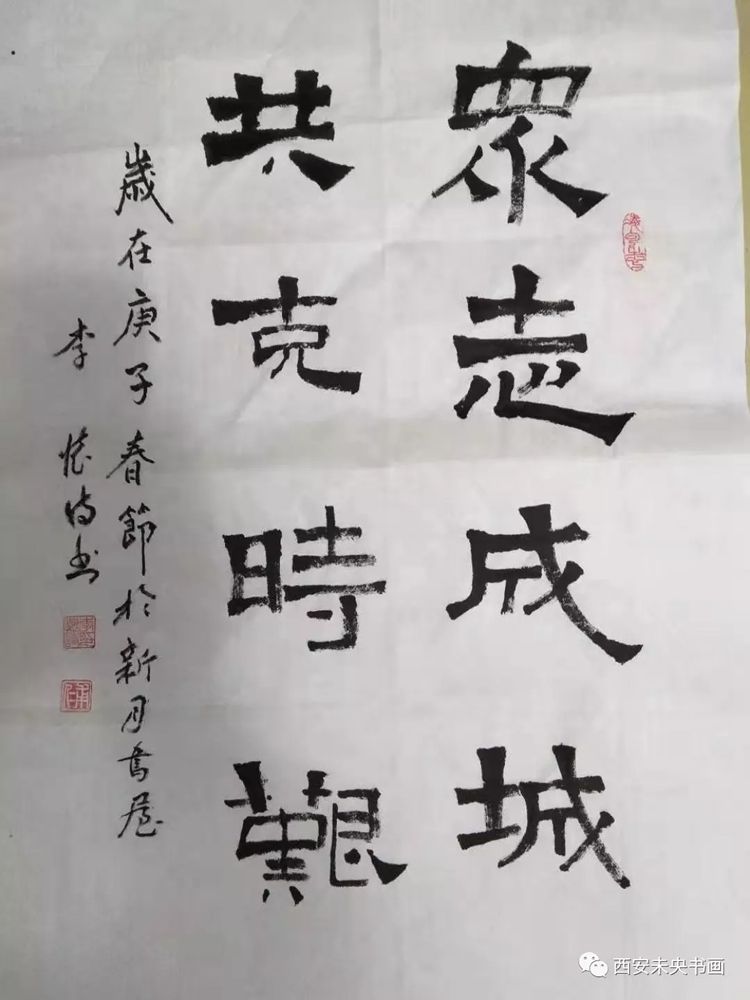 眾志成城
共克時艱
歲在庚子春節於新月書屋
李懷詩书
西安未央书画